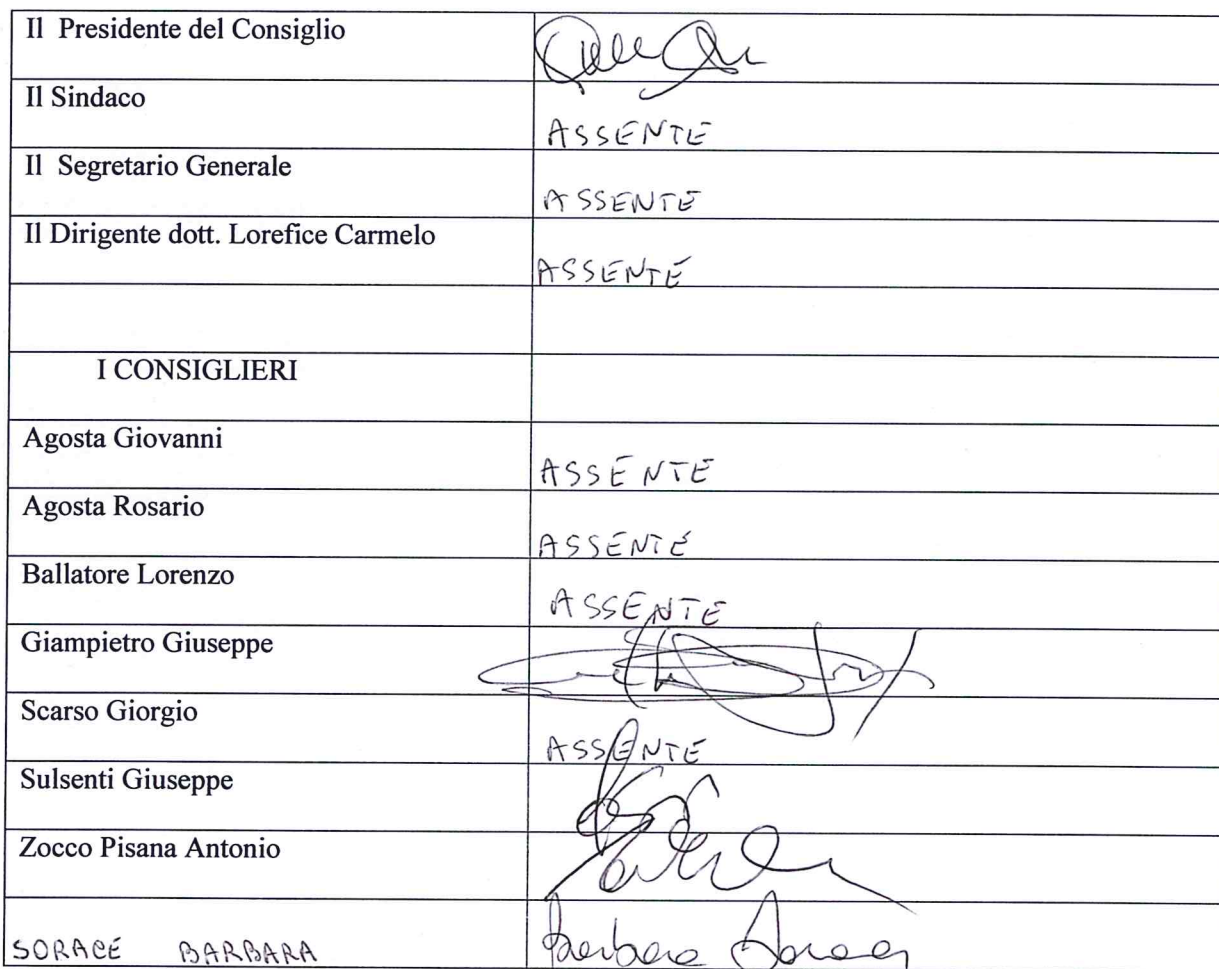 Il Presidente del Consiglio
Il Sindaco ASSENTE
Il Segretario Generale ASSENTE
Il Dirigente dott. Lorefice Carmelo ASSENTE
I CONSIGLIERI
Agosta Giovanni ASSENTE
Agosta Rosario ASSENTE
Ballatore Lorenzo ASSENTE
Giampietro Giuseppe
Scarso Giorgio ASSENTE
Sulsenti Giuseppe
Zocco Pisana Antonio
SORACE BARBARA Barbara Sorace